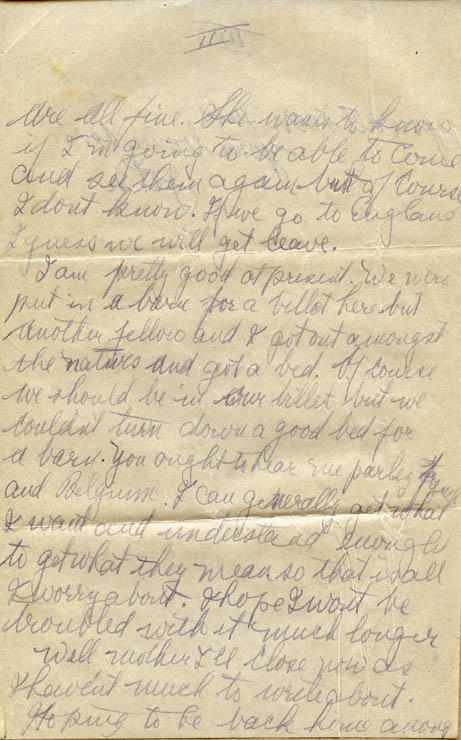 III
are all fine. She wants to know
if I'm going to be able to come
and see them again but of course
I dont know. If we go to England
I guess we will get leave.
I am pretty good at present. We were
put in a barn for a billet here but
another fellow and I got out amongst
the natives and got a bed. Of course
we should be in our billet but we
couldnt turn down a good bed for
a barn. You ought to hear me parley
and Belgium. I can generally get what
I want and understand enough
to get what they mean so that is all
I worry about. I hope I wont be
troubled with it much longer
Well mother I'll close now as
I havent much to write about.
Hoping to be back home among